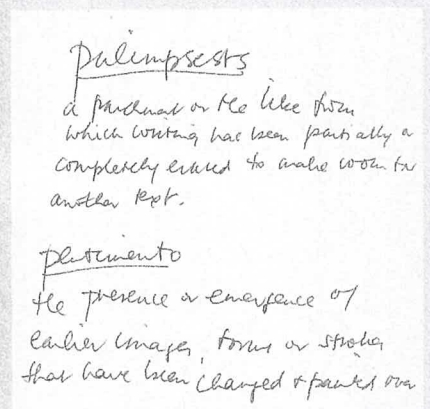 Palimpsests
a parchment or the like from
which writing has been partially or
completely erased to make room for
another text.
the presence or emergence of
earlier images, forms or strokes
that have been changed & painted over